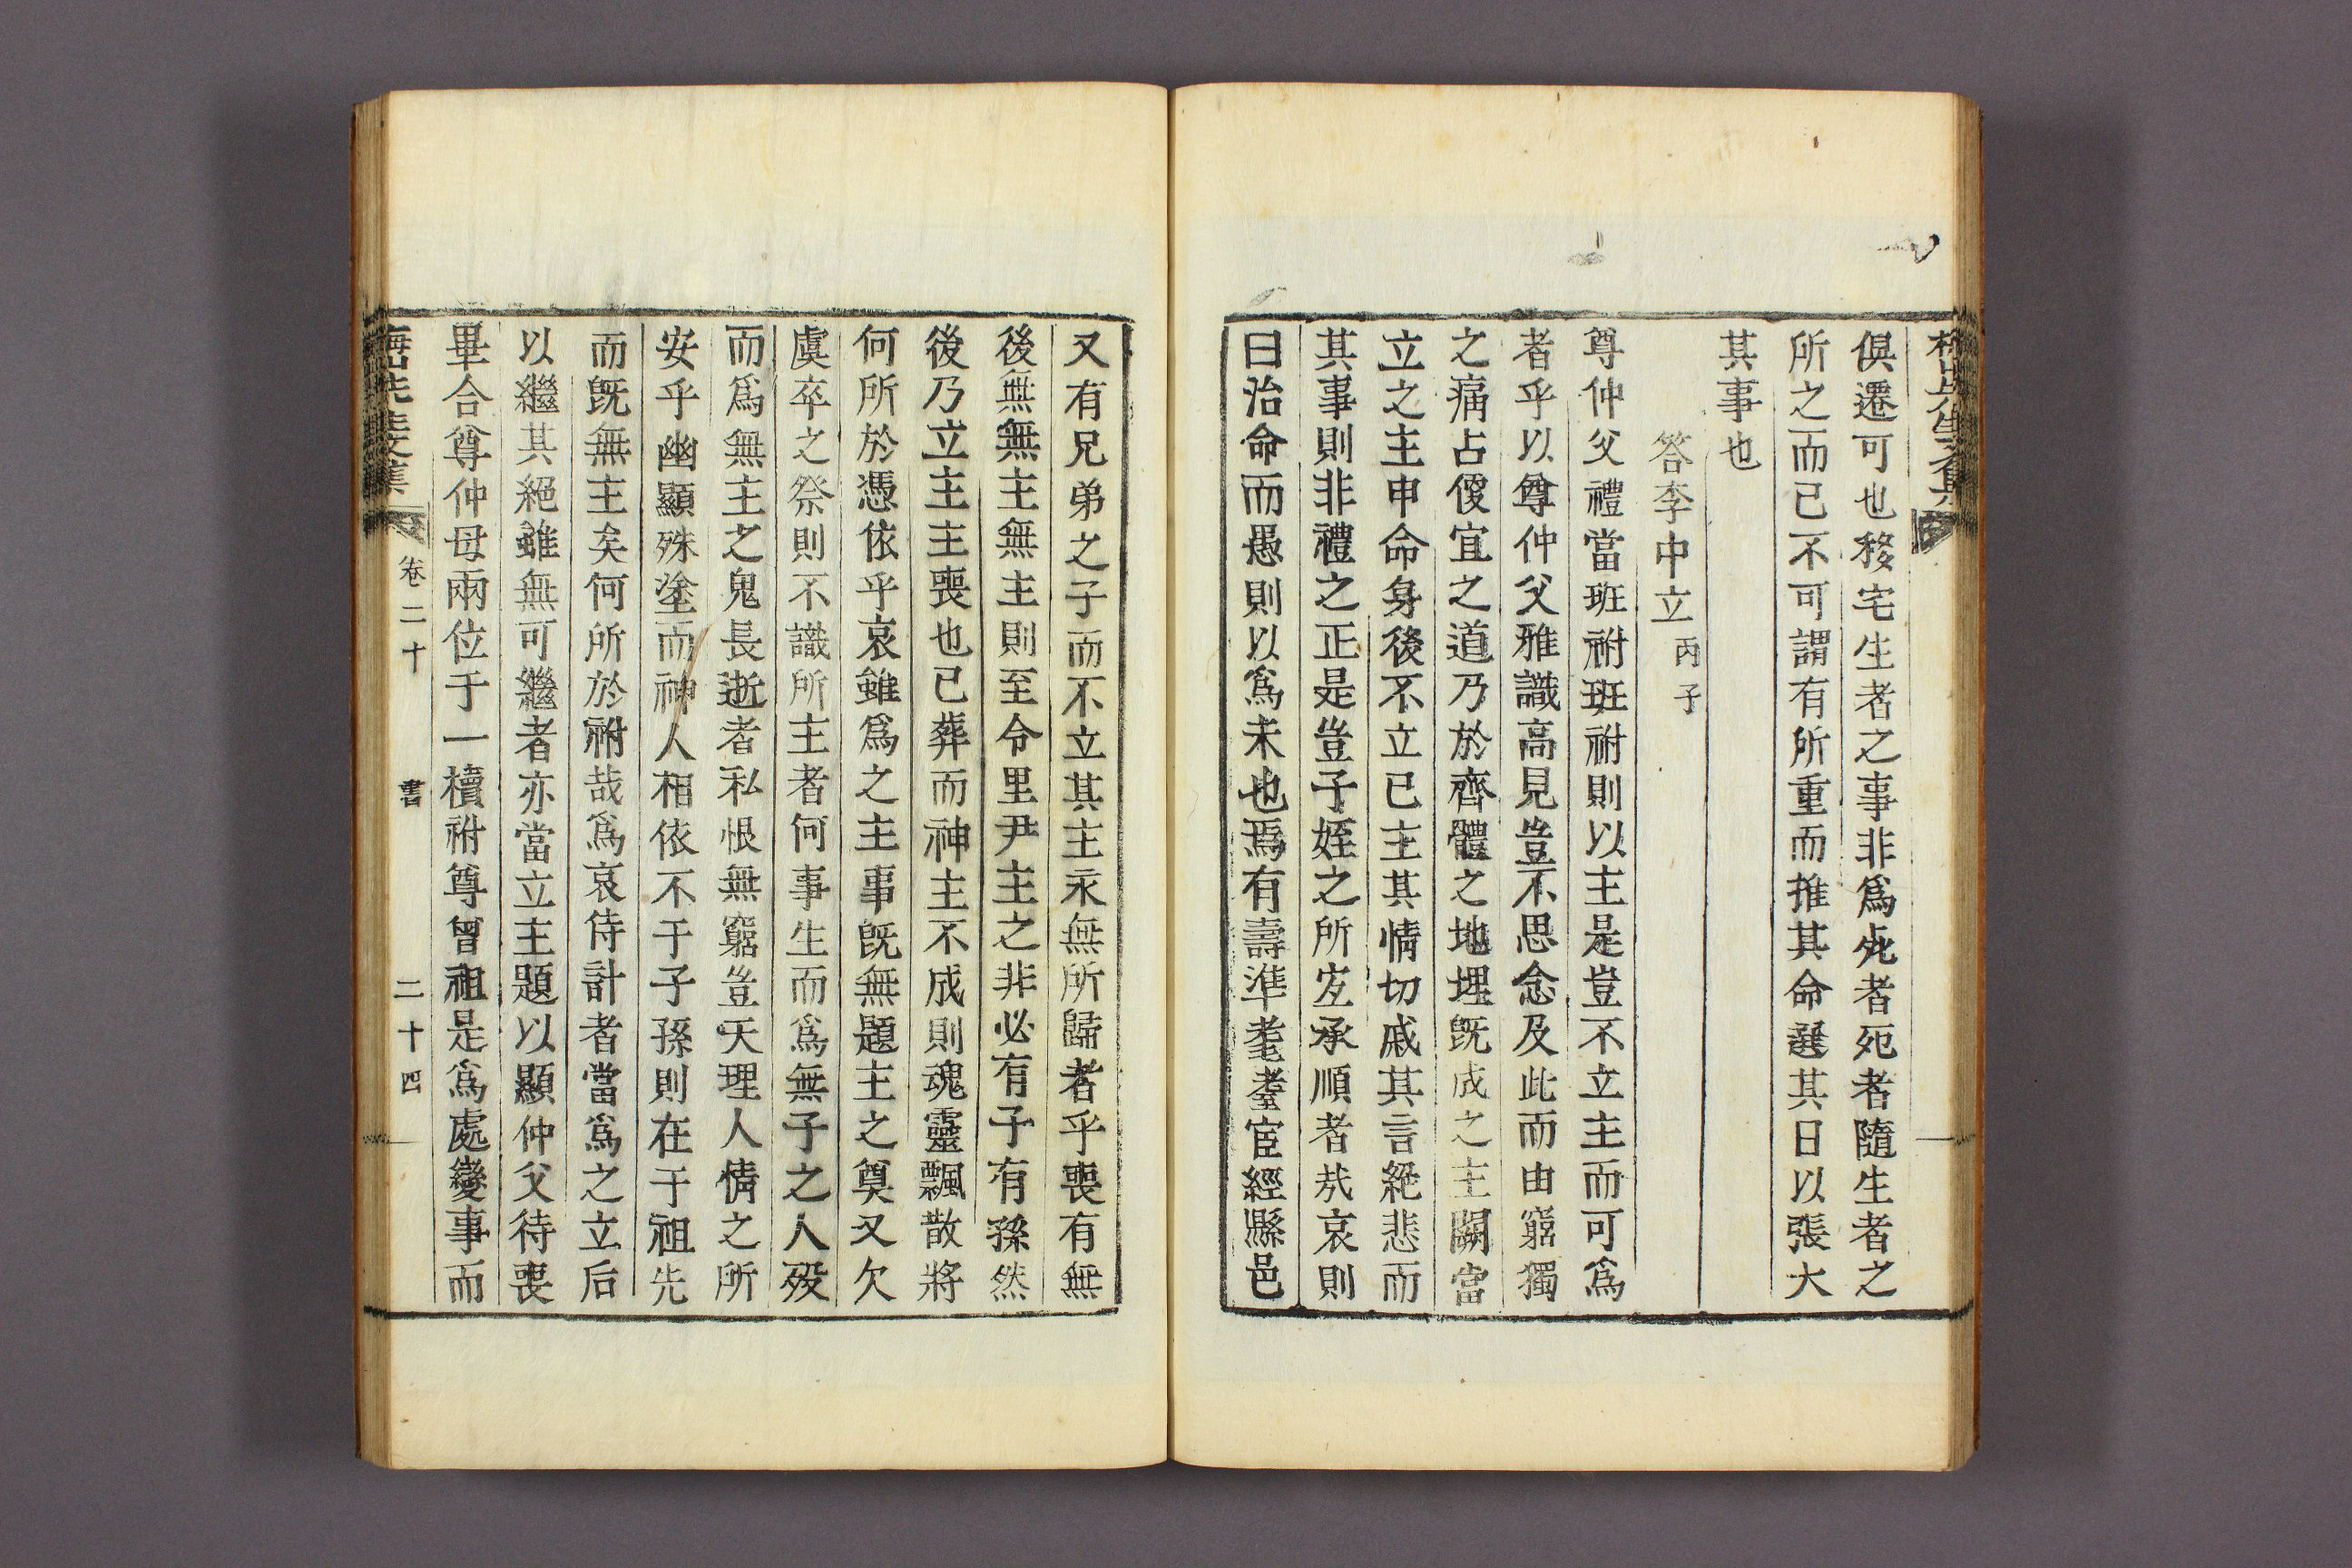 梅山先生文集
俱遷可也移宅生者之事非爲死者死者隨生者之
所之而已不可謂有所重而推其命選其日以張大
其事也
答李中立丙子
尊仲父禮當班祔班祔則以主是豈不立主而可爲
者乎以尊仲父雅識高見豈不思念及此而由窮獨
之痛占儍宜之道乃於齊體之地埋旣成之主闕當
立之主申命身後不立已主其情切戚其言絶悲而
其事則非禮之正是豈子姪之所宐承順者㢤哀則
曰治命而愚則以爲未也焉有壽準耄耋宦經縣邑
又有兄弟之子而不立其主永無所歸者乎喪有無
後無無主無主則至令里尹主之非必有子有孫然
後乃立主主喪也已葬而神主不成則魂靈飄散將
何所於憑依乎哀雖爲之主事旣無題主之奠又欠
虞卒之祭則不識所主者何事生而爲無子之人歿
而爲無主之鬼長逝者私恨無窮豈天理人情之所
安乎幽顯殊塗而神人相依不于子孫則在于祖先
而旣無主矣何所於祔哉爲哀侍計者當爲之立后
以繼其絕雖無可繼者亦當立主題以顯仲父待喪
畢合尊仲母兩位于一櫝祔尊曾祖是爲處變事而
梅山先生文集 卷二十 書 二十四